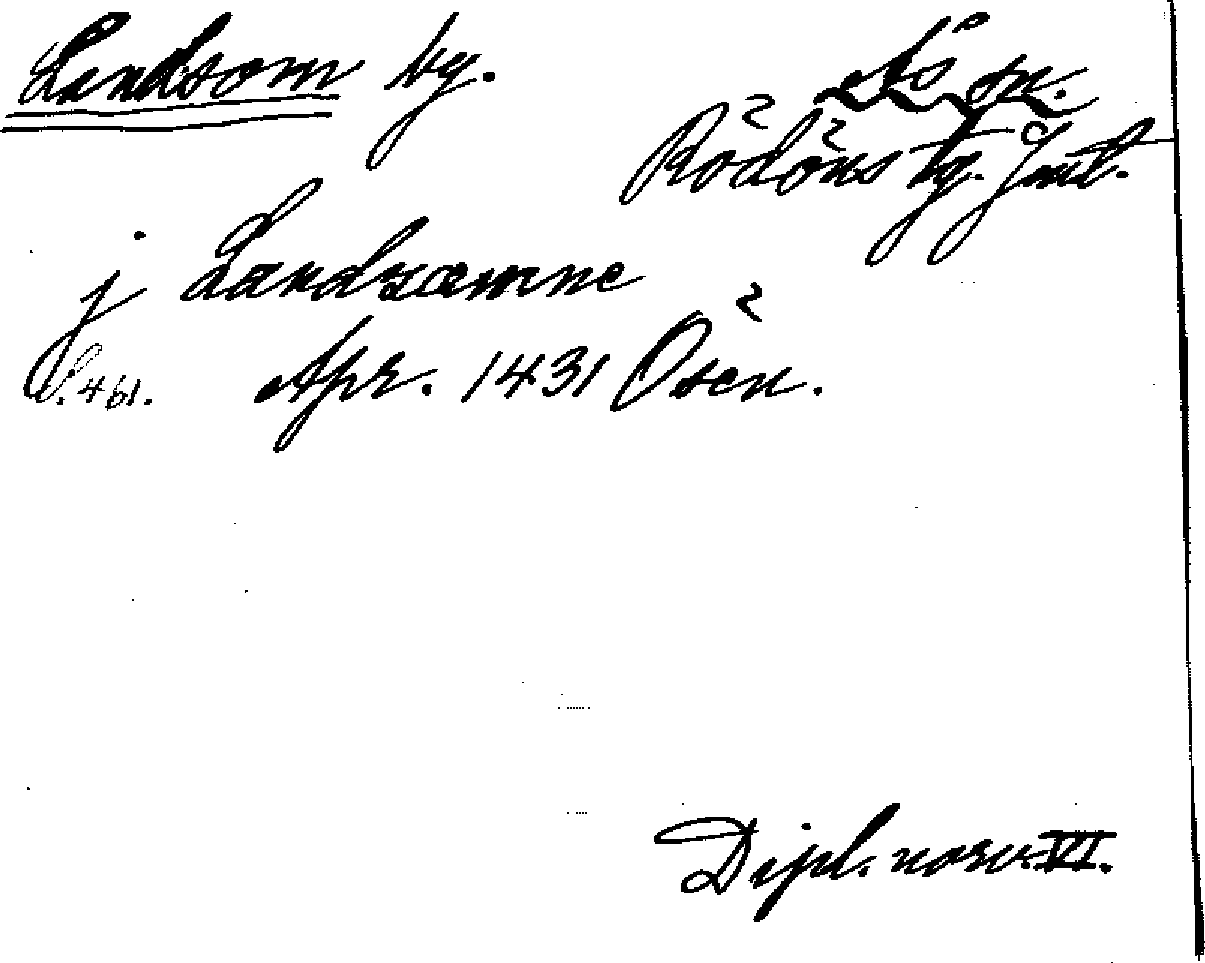 Landsom by.
Ås sn.
Rödöns tg. Jmtl.
j Landzæmne
S. 461. Apr. 1431 Ösen.
Dipl. norv. VI.